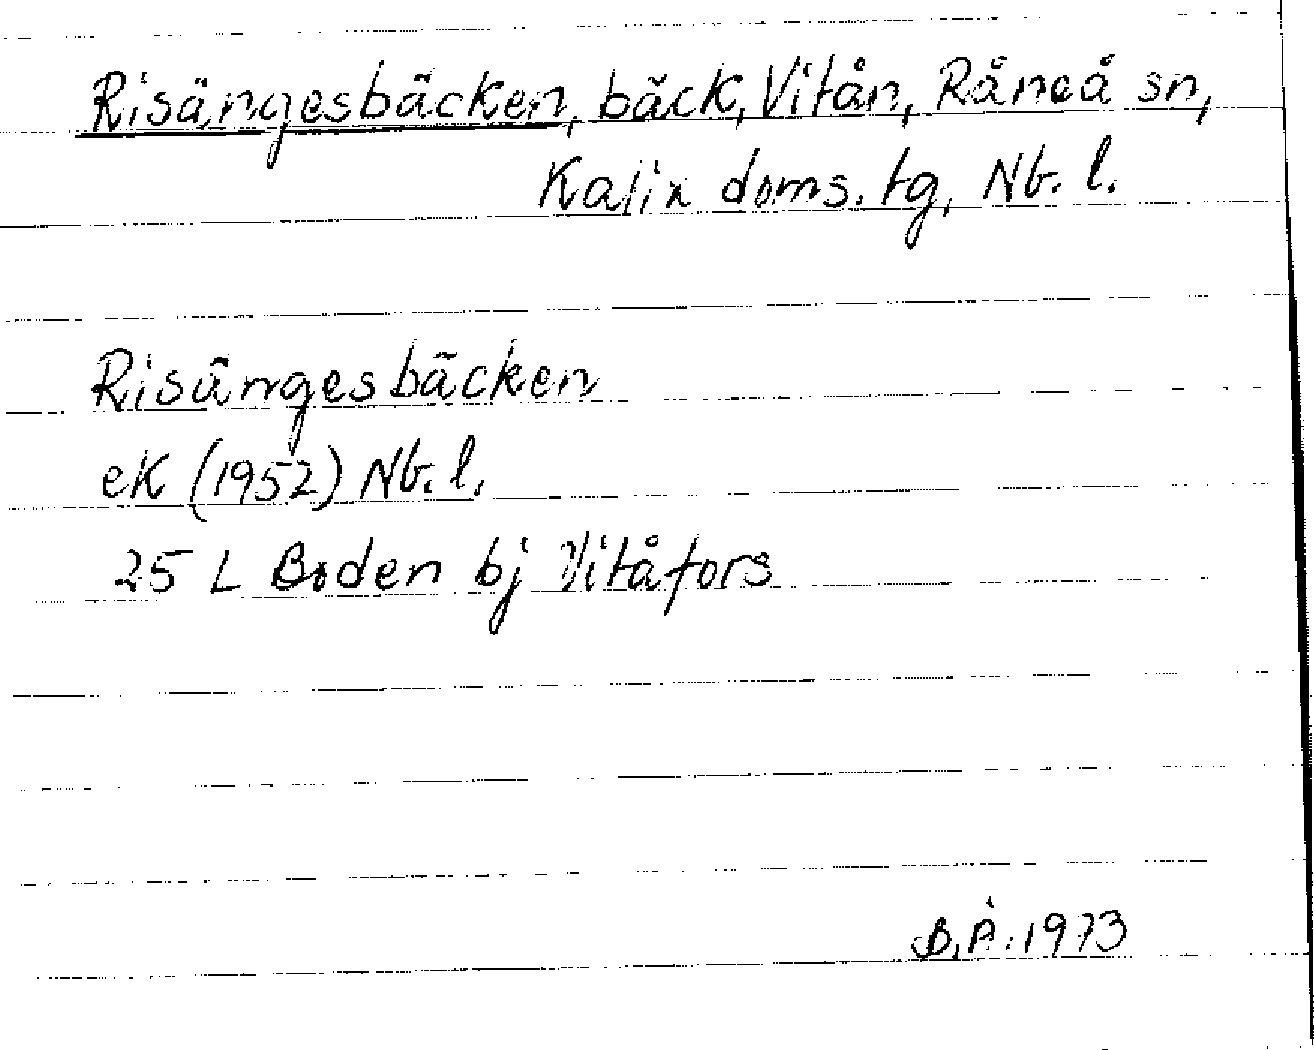 Risängesbäcken, bäck, Vitån, Råneå sn,
Kalix doms. tg, Nb. l.
Risängesbäcken
eK (1952) Nb. l.
25 L Boden bj Vitåfors
B.Å. 1973